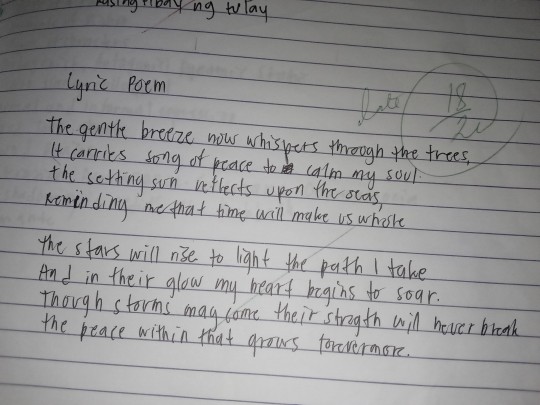 ng tulay
Lyric Poem
late 18/20
the gentle breeze now whispers through the trees,
It carries song of peace to calm my soul.
the setting sun reflects upon the seas,
Reminding me that time will make us whole
the stars will rise to light the path I take
And in their glow my heart begins to soar.
Though storms may come their strogth will never break
the peace within that grows forevermore.